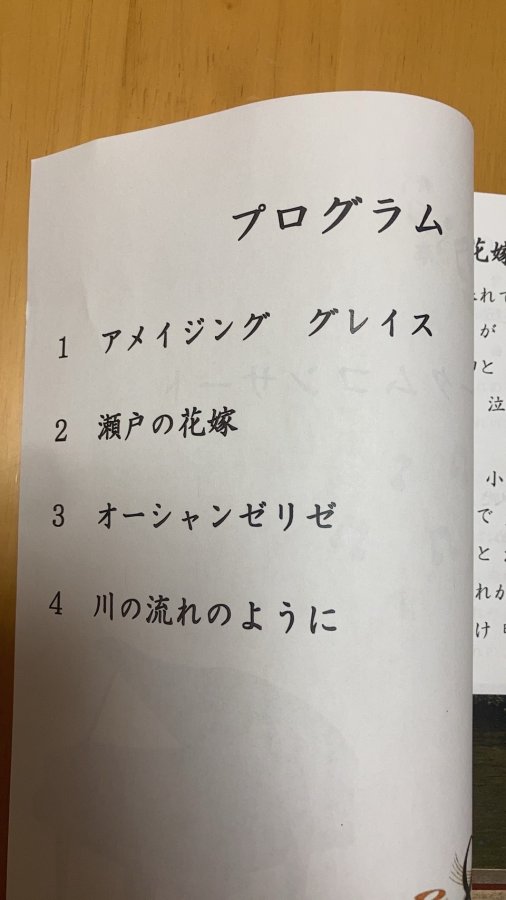 プログラム
1 アメイジング グレイス
2 瀬戸の花嫁
3 オーシャンゼリゼ
4 川の流れのように
花嫁
れて
が
と
泣
小
で
と
れが
け